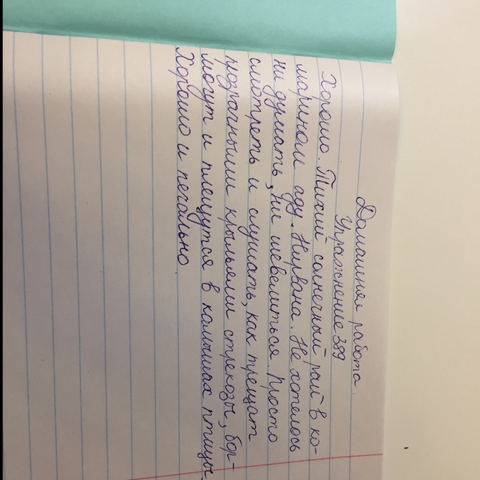 Домашняя работа.
Упражнение 389
Хорошо. Тихий солнечный рай в ко-
марином аду. Нирвана. Не хотелось
ни думать, ни шевелиться. Просто
смотреть и слушать, как трещат
прозрачными крыльями стрекозы, бор-
мочут и плещутся в камышах птицы.
Хорошо и печально.